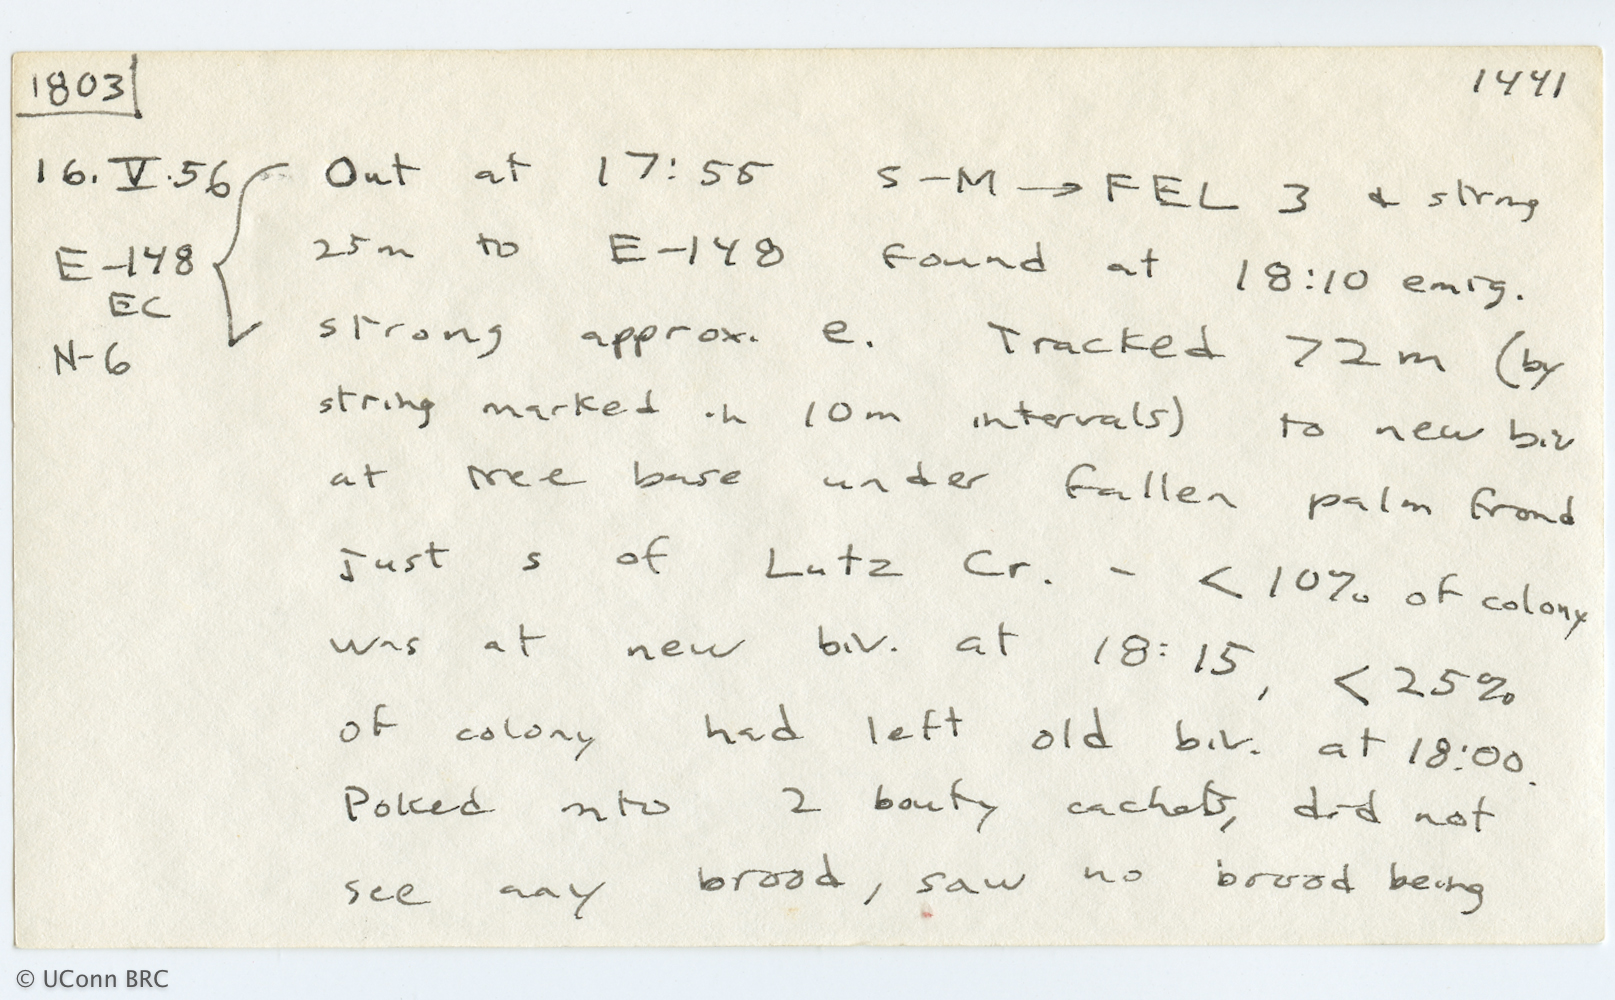 1803
1441
16.V.56
E-148
EC
N-6
Out at 17:55 S-M → FEL 3 & string
25m to E-148 found at 18:10 emig.
strong approx. e. Tracked 72m (by
string marked in 10m intervals) to new biv
at tree base under fallen palm frond
just s of Lutz Cr. - <10% of colony
was at new biv. at 18:15, <25%
of colony had left old biv. at 18:00.
Poked into 2 bouty cachets, did not
see any brood, saw no brood being
© UConn BRC